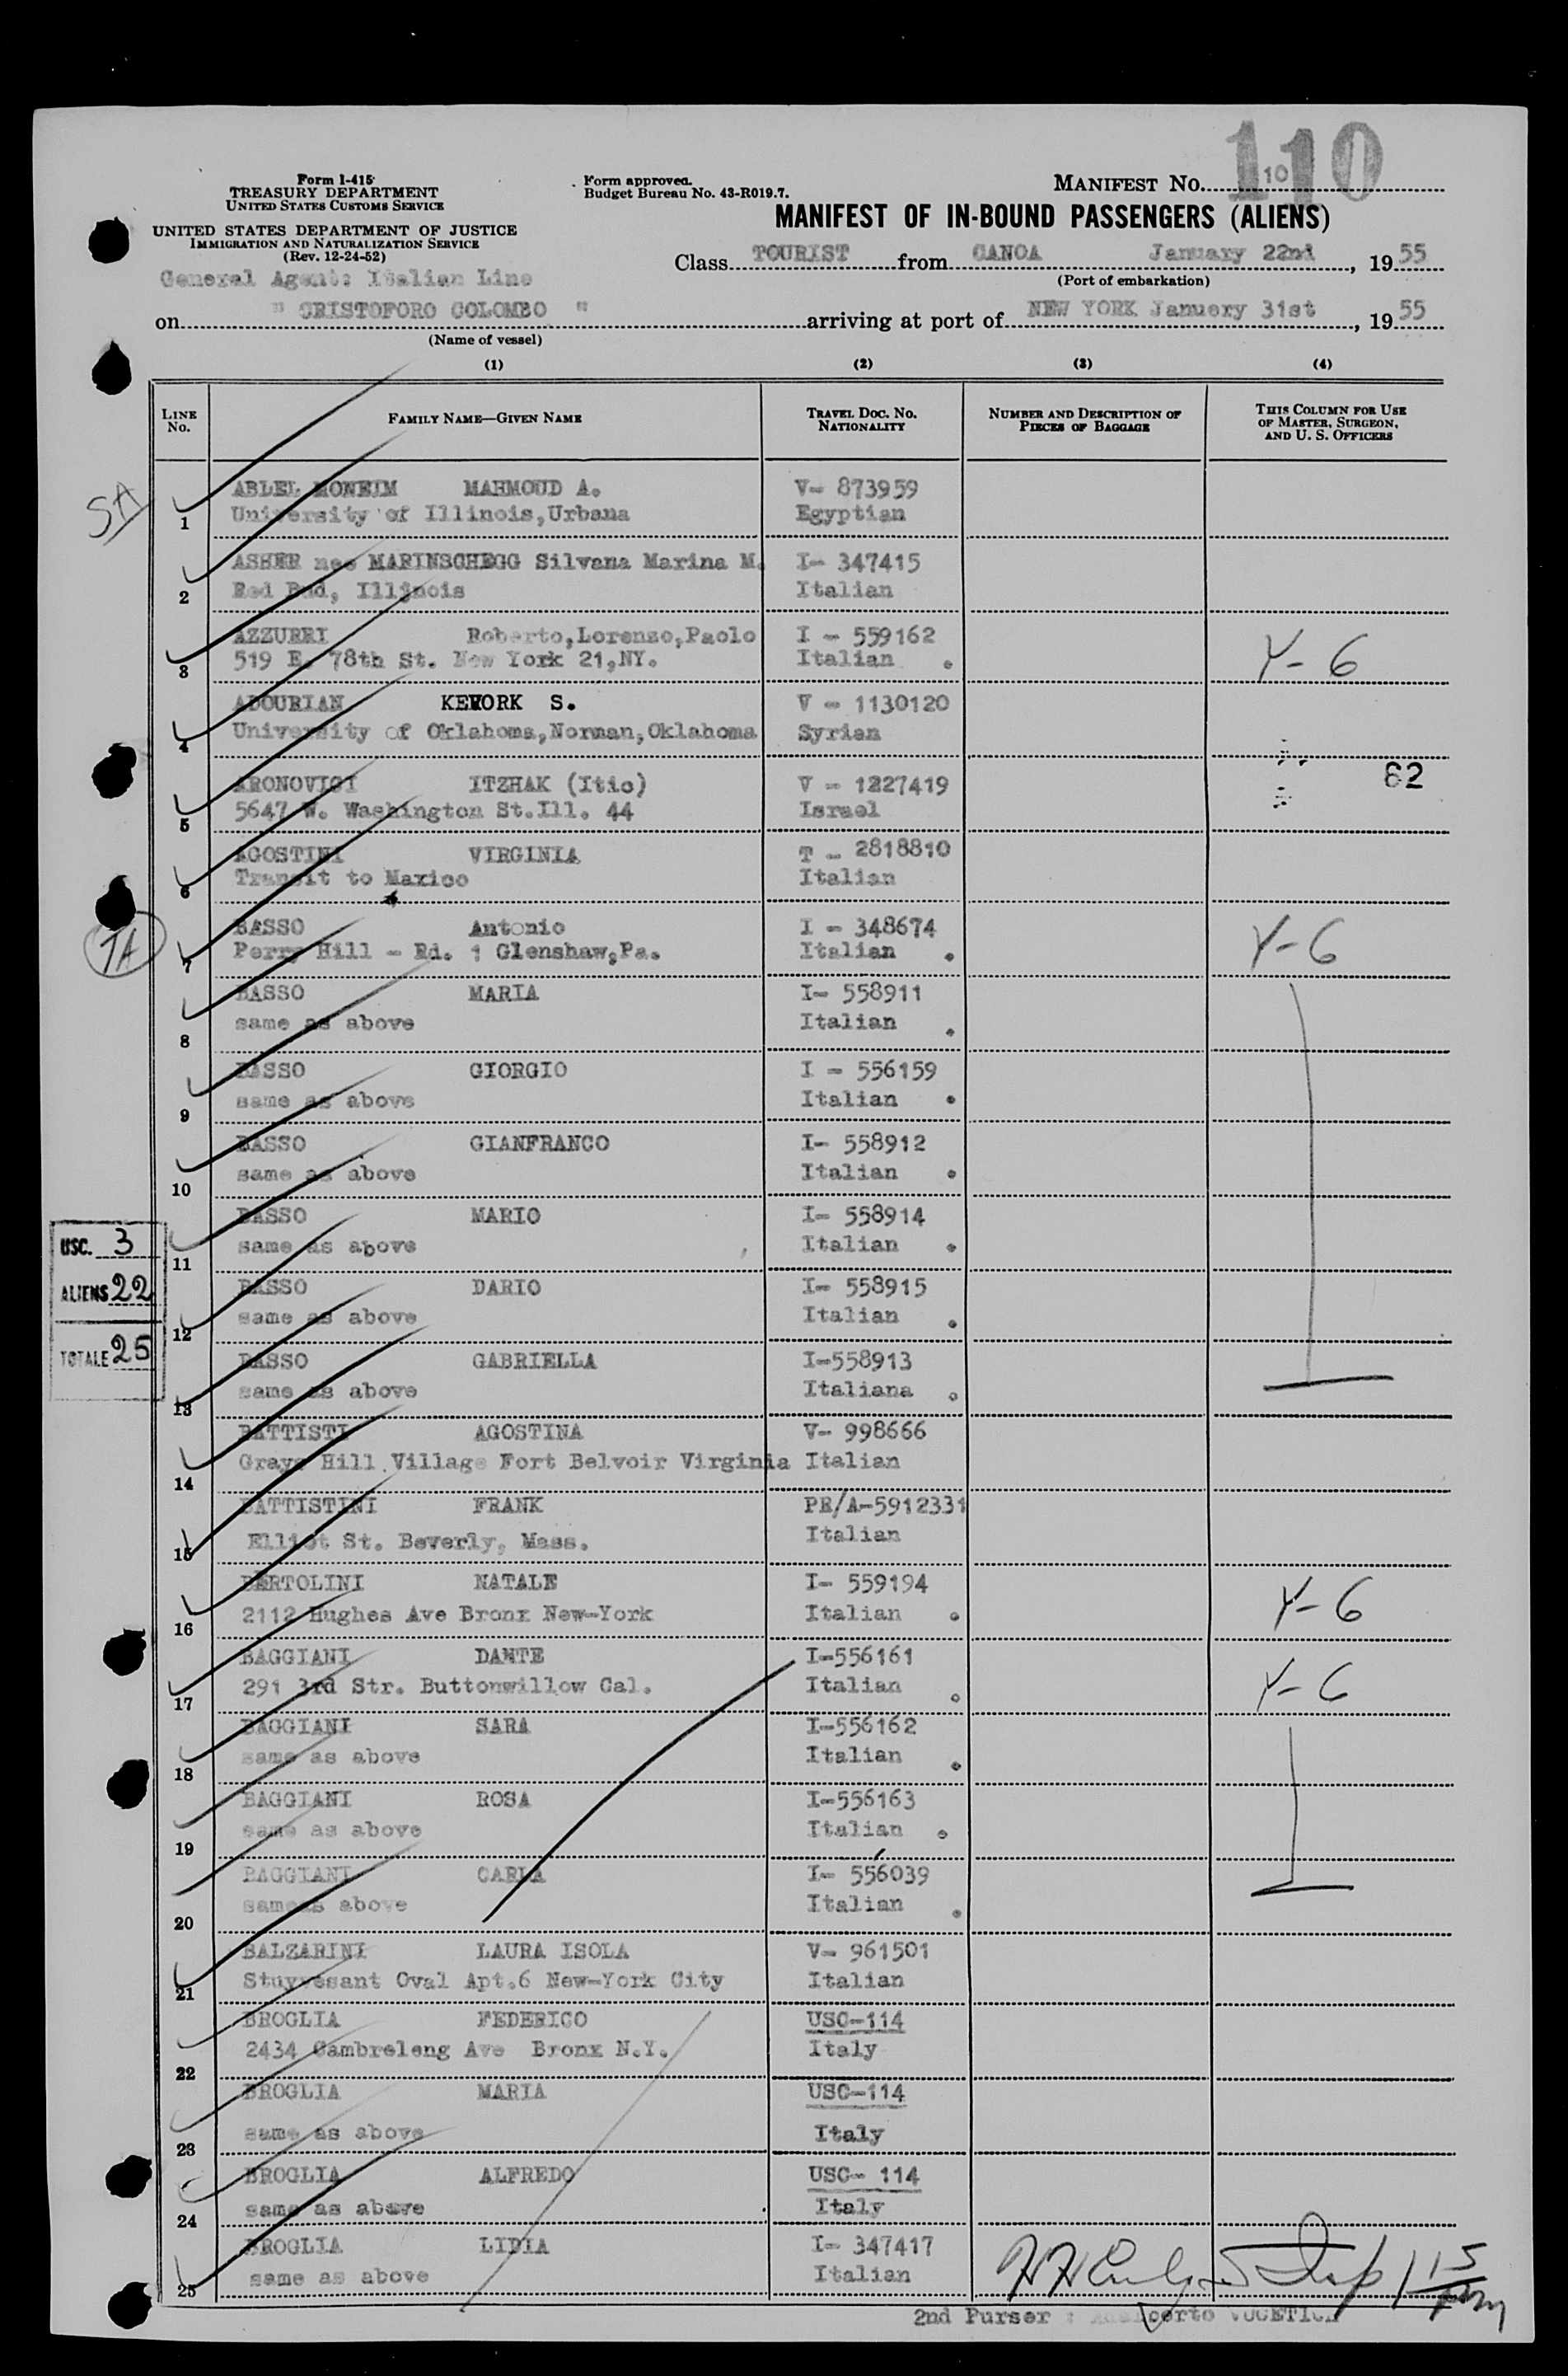 110
10
Form I-415
TREASURY DEPARTMENT
UNITED STATES CUSTOMS SERVICE
UNITED STATES DEPARTMENT OF JUSTICE
IMMIGRATION AND NATURALIZATION SERVICE
(Rev. 12-24-52)
Form approved.
Budget Bureau No. 43-R019.7.
MANIFEST NO.
MANIFEST OF IN-BOUND PASSENGERS (ALIENS)
General Agent: Italian Line
Class TOURIST from GANOA January 22nd, 1955
(Port of embarkation)
on " CRISTOFORO COLOMBO " arriving at port of NEW YORK January 31st, 1955
(Name of vessel)
(1) (2) (3) (4)
LINE No. FAMILY NAME—GIVEN NAME TRAVEL DOC. NO. NATIONALITY NUMBER AND DESCRIPTION OF PIECES OF BAGGAGE THIS COLUMN FOR USE OF MASTER, SURGEON, AND U. S. OFFICERS
SA
1 ABLEL MONEIM MAHMOUD A. V- 873959
University of Illinois,Urbana Egyptian
2 ASHER nee MARINSCHEGG Silvana Marina M. I- 347415
Red Bud, Illinois Italian
3 AZZURRI Roberto,Lorenzo,Paolo I - 559162
519 E. 78th St. New York 21,NY. Italian Y-6
4 ADOURIAN KEVORK S. V - 1130120
University of Oklahoma,Norman,Oklahoma Syrian
62
5 ARONOVICI ITZHAK (Itic) V - 1227419
5647 W. Washington St.Ill. 44 Israel
6 AGOSTINI VIRGINIA T - 2818810
Transit to Maxico Italian
TA
7 BASSO Antonio I - 348674
Perry Hill - Rd. 1 Glenshaw,Pa. Italian Y-6
8 BASSO MARIA I- 558911
same as above Italian
9 BASSO GIORGIO I - 556159
same as above Italian
10 BASSO GIANFRANCO I- 558912
same as above Italian
11 BASSO MARIO I- 558914
same as above Italian
USC. 3
ALIENS 22
TOTALE 25
12 BASSO DARIO I- 558915
same as above Italian
13 BASSO GABRIELLA I-558913
same as above Italiana
14 BATTISTI AGOSTINA V- 998666
Grays Hill Village Fort Belvoir Virginia Italian
15 BATTISTINI FRANK PR/A-5912331
Elliot St. Beverly, Mass. Italian
16 BERTOLINI NATALE I- 559194
2112 Hughes Ave Bronx New-York Italian Y-6
17 BAGGIANI DANTE I-556161
291 3rd Str. Buttonwillow Cal. Italian Y-6
18 BAGGIANI SARA I-556162
same as above Italian
19 BAGGIANI ROSA I-556163
same as above Italian
20 BAGGIANI CARLA I- 556039
same as above Italian
21 BALZARINI LAURA ISOLA V- 961501
Stuyvesant Oval Apt.6 New-York City Italian
22 BROGLIA FEDERICO USC-114
2434 Cambreleng Ave Bronx N.Y. Italy
23 BROGLIA MARIA USC-114
same as above Italy
24 BROGLIA ALFREDO USC- 114
same as above Italy
25 BROGLIA LIDIA I- 347417
same as above Italian
2nd Purser :